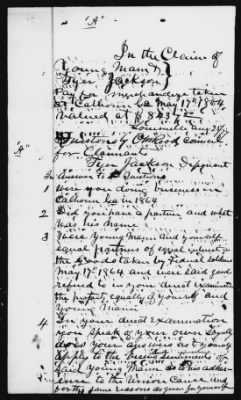 "A"
In the Claim of
Young Mann &
Tyler Jackson
Pay for Compondery taken
at Calhoun Ga May 17th 1864
Valued at $843
Louisville Aug
Questions by Council
for Claimants
Tyler Jackson Deponent
in answer to Questions
"A"
1 Were you doing business in
Calhoun Ga in 1864
2 Did you have a partner and what
was his name
3 Were Young Mann and yourself
equal partners of equal interest in
the Goods taken by Federal soldiers
May 17th 1864 and were said goods
refered to in your direct examination
the property equally of yourself and
Young Mann
4 In your direct examination
you speak of your own loyalty
does your answers as to loyalty
apply to the sentiments of
said Young Mann as to his adher-
ence to the Union Cause and
for the same reasons as given